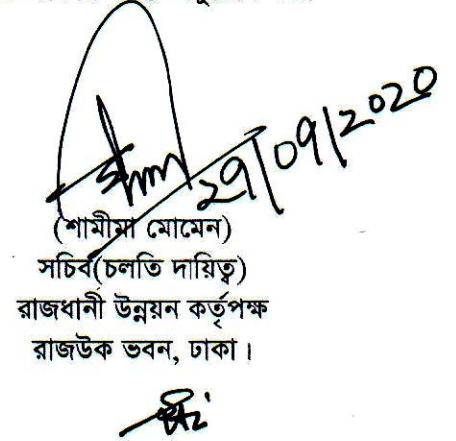 ২৯/০৯/২০২০
(শামীমা মোমেন)
সচিব(চলতি দায়িত্ব)
রাজধানী উন্নয়ন কর্তৃপক্ষ
রাজউক ভবন, ঢাকা।